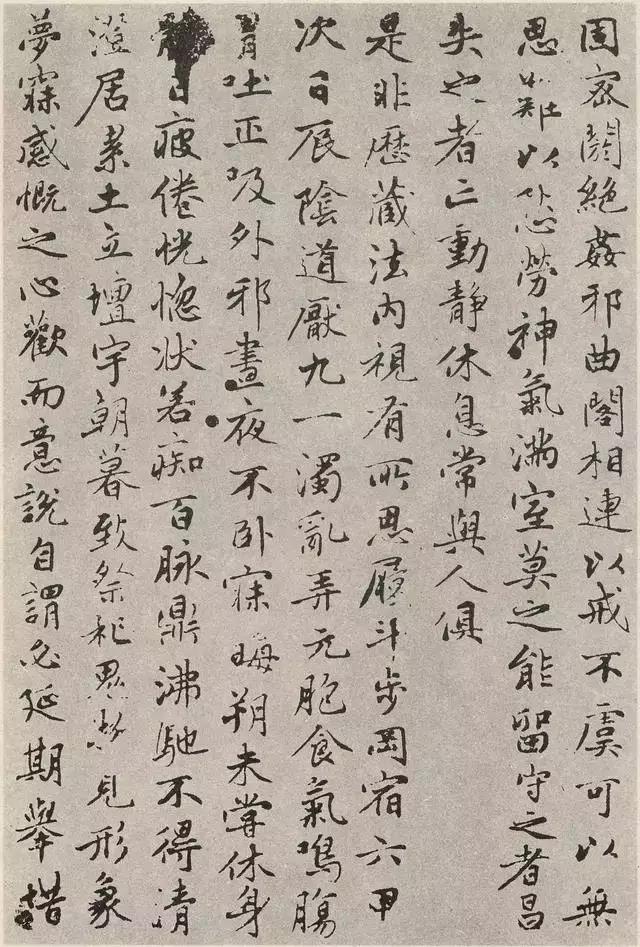 固密閼絕姦邪曲閣相連以戒不虞可以無
思難以愁勞神氣滿室莫之能留守之者昌
失之者亡動靜休息常與人俱
是非歷藏法內視有所思履斗步岡宿六甲
次日辰陰道厭九一濁亂弄元胞食氣鳴腸
胃吐正吸外邪晝夜不卧寐晦朔未嘗休身
日疲倦恍惚状若痴百脉鼎沸馳不得清
澄居累土立壇宇朝暮致祭祀鬼物見形象
夢寐感慨之心歡而意說自謂必延期舉措